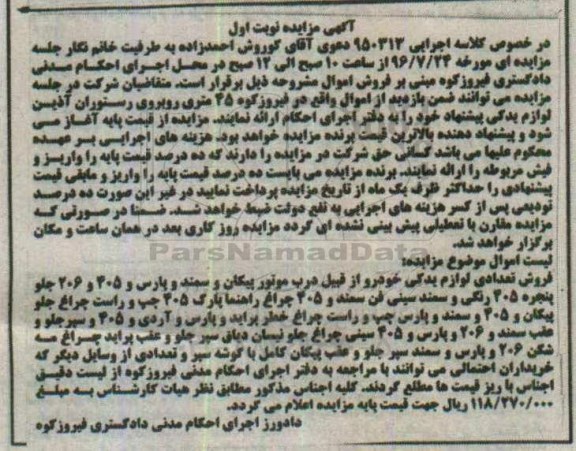 آگهی مزایده نوبت اول
در خصوص کلاسه اجرایی ۹۵۰۳۱۳ دعوی آقای کوروش احمدزاده به طرفیت خانم نگار جلسه
مزایده ای مورخه ۹۶/۷/۲۴ از ساعت ۱۰ صبح الی ۱۲ صبح در محل اجرای احکام مدنی
دادگستری فیروزکوه مبنی بر فروش اموال مشروحه ذیل برقرار است. متقاضیان شرکت در جلسه
مزایده می توانند ضمن بازدید از اموال واقع در فیروزکوه ۴۵ متری روبروی رستوران آذین
لوازم یدکی پیشنهاد خود را به دفتر اجرای احکام ارائه نمایند. مزایده از قیمت پایه آغاز می
شود و پیشنهاد دهنده بالاترین قیمت برنده مزایده خواهد بود. هزینه های اجرایی بر عهده
محکوم علیها می باشد کسانی حق شرکت در مزایده را دارند که ده درصد قیمت پایه را واریز و
فیش مربوطه را ارائه نمایند. برنده مزایده می بایست ده درصد قیمت پایه را واریز و مابقی قیمت
پیشنهادی را حداکثر ظرف یک ماه از تاریخ مزایده پرداخت نمایید در غیر این صورت ده درصد
تودیعی پس از کسر هزینه های اجرایی به نفع دولت ضبط خواهد شد. ضمنا در صورتی که
مزایده مقارن با تعطیلی پیش بینی نشده ای گردد مزایده روز کاری بعد در همان ساعت و مکان
برگزار خواهد شد.
ParsNamadData
لیست اموال موضوع مزایده:
فروش تعدادی لوازم یدکی خودرو از قبیل درب موتور پیکان و سمند و پارس و ۴۰۵ و ۲۰۶ جلو
پنجره ۴۰۵ رنگی و سمند سینی فن سمند و ۴۰۵ چراغ راهنما پارک ۴۰۵ چپ و راست چراغ جلو
پیکان و ۴۰۵ و سمند و پارس چپ و راست چراغ خطر پراید و پارس و آردی و ۴۰۵ و سپرجلو و
عقب سمند و ۲۰۶ و پارس و ۴۰۵ سینی چراغ جلو نیسان دیاق سپر جلو و عقب پراید چراغ مه
شکن ۲۰۶ و پارس و سمند سپر جلو و عقب پیکان کامل با گوشه سپر و تعدادی از وسایل دیگر که
خریداران احتمالی می توانند با مراجعه به دفتر اجرای احکام مدنی فیروزکوه از لیست دقیق
اجناس با ریز قیمت ها مطلع گردند. کلیه اجناس مذکور مطابق نظر هیات کارشناس به مبلغ
۱۱۸/۲۷۰/۰۰۰ ریال جهت قیمت پایه مزایده اعلام می گردد.
دادورز اجرای احکام مدنی دادگستری فیروزکوه